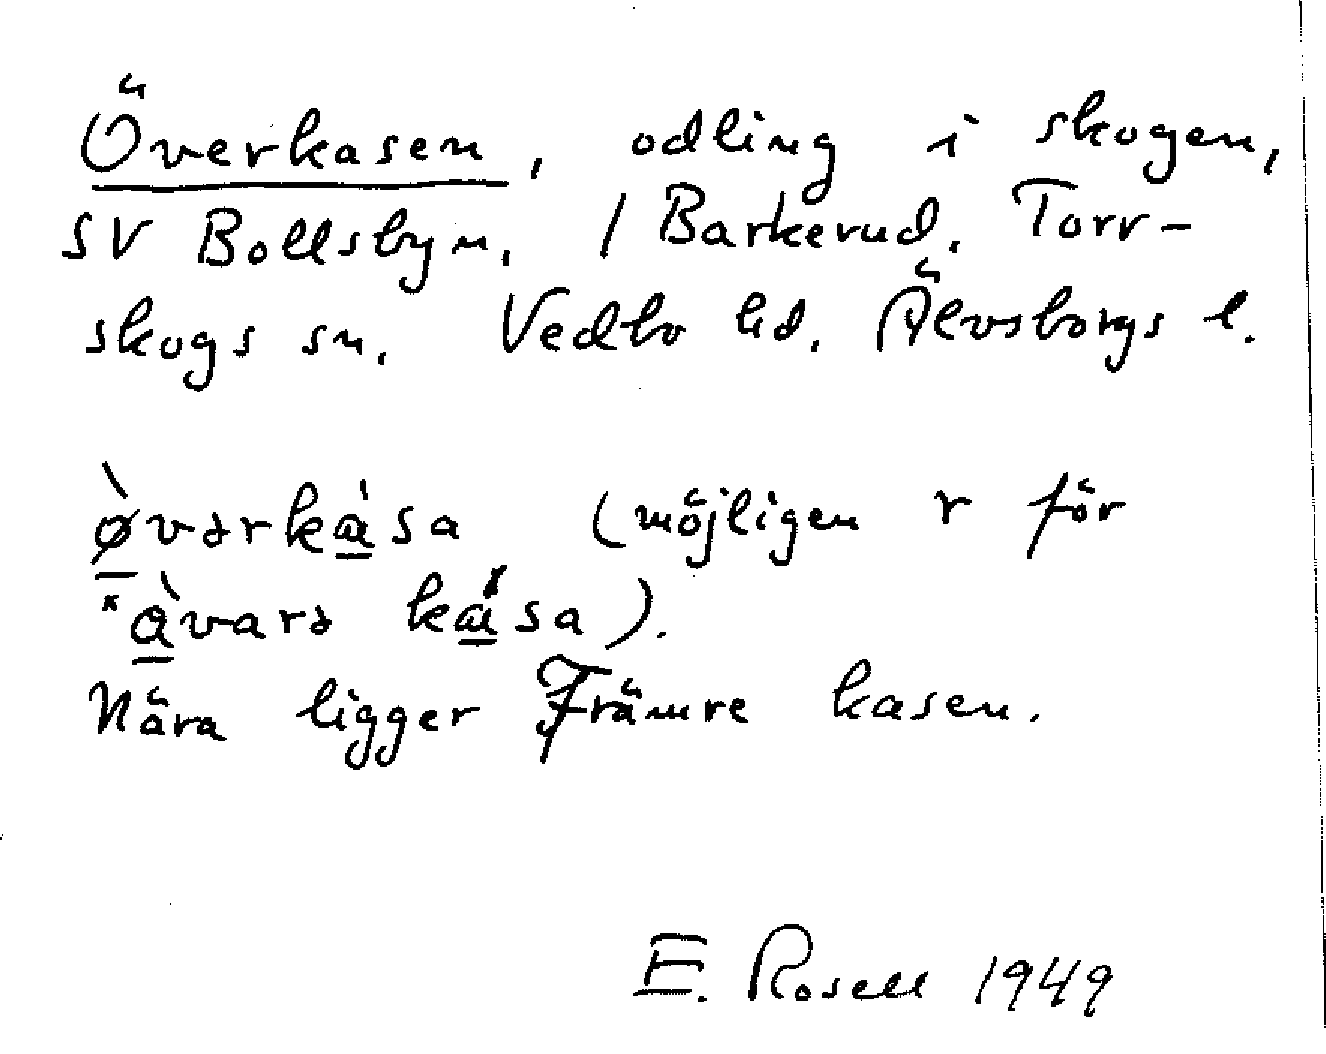 Överkasen, odling i skogen,
SV Bollsbyn, 1 Barkerud. Torr-
skogs sn. Vedbo hd. Älvsborgs l.
ø̀vərkàsa (möjligen r för
*àvarə kasa).
Nära ligger Främre kasen.
E. Rosell 1949